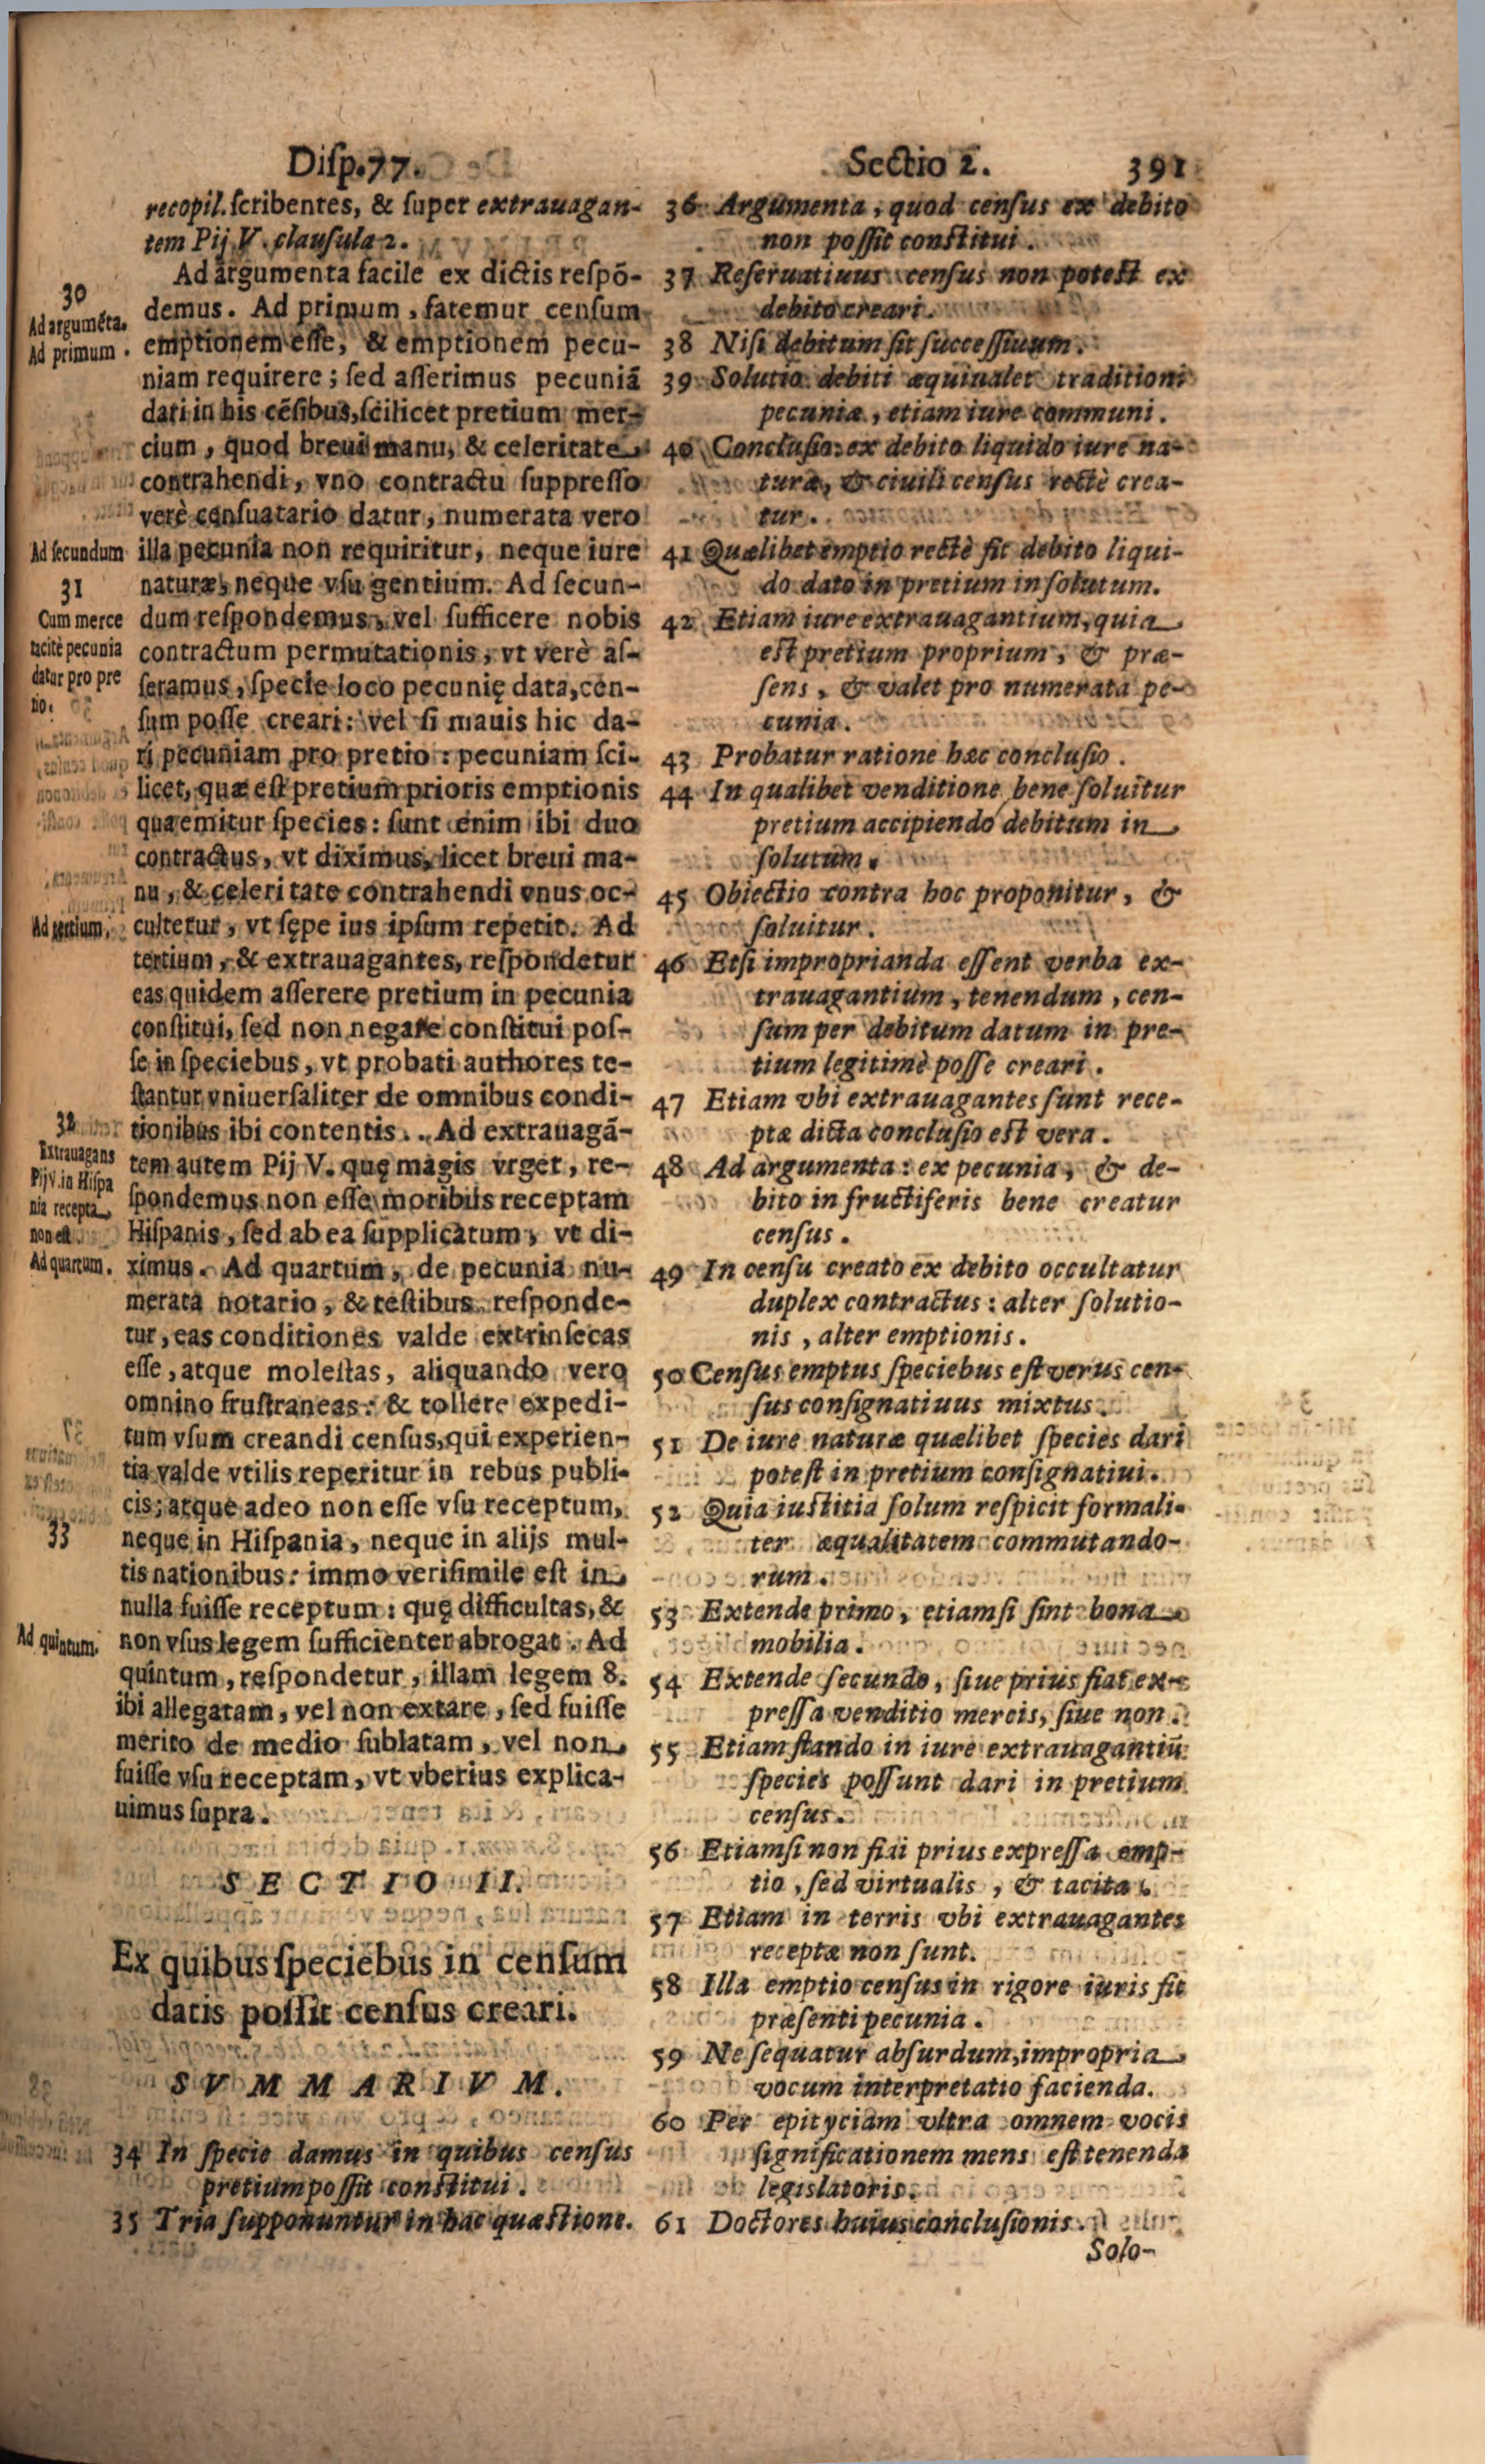 Disp.77. Sectio 2. 391
recopil. scribentes, & super extrauagan-
tem Pij V. clausula 2.
Ad argumenta facile ex dictis respõ-
demus. Ad primum, fatemur censum
emptionem esse, & emptionem pecu-
niam requirere; sed asserimus pecuniã
dari in his cẽsibus, scilicet pretium mer-
cium, quod breui manu, & celeritate
contrahendi, vno contractu suppresso
verè censuatario datur, numerata vero
illa pecunia non requiritur, neque iure
naturæ, neque vsu gentium. Ad secun-
dum respondemus, vel sufficere nobis
contractum permutationis, vt verè as-
seramus, specie loco pecunię data, cen-
sum posse creari: vel si mauis hic da-
ri pecuniam pro pretio: pecuniam sci-
licet, quæ est pretium prioris emptionis
qua emitur species: sunt enim ibi duo
contractus, vt diximus, licet breui ma-
nu, & celeritate contrahendi vnus oc-
cultetur, vt sępe ius ipsum repetit. Ad
tertium, & extrauagantes, respondetur
eas quidem asserere pretium in pecunia
constitui, sed non negare constitui pos-
se in speciebus, vt probati authores te-
stantur vniuersaliter de omnibus condi-
tionibus ibi contentis. Ad extrauagã-
tem autem Pij V. quę magis vrget, re-
spondemus non esse moribus receptam
Hispanis, sed ab ea supplicatum, vt di-
ximus. Ad quartum, de pecunia nu-
merata notario, & testibus respōnde-
tur, eas conditiones valde extrinsecas
esse, atque molestas, aliquando vero
omnino frustraneas: & tollere expedi-
tum vsum creandi census, qui experien-
tia valde vtilis reperitur in rebus publi-
cis; atque adeo non esse vsu receptum,
neque in Hispania, neque in alijs mul-
tis nationibus: immo verisimile est in
nulla fuisse receptum: quę difficultas, &
non vsus legem sufficienter abrogat. Ad
quintum, respondetur, illam legem 8.
ibi allegatam, vel non extare, sed fuisse
merito de medio sublatam, vel non
fuisse vsu receptam, vt vberius explica-
uimus supra.
30
Ad argumẽta.
Ad primum.
Ad secundum
31
Cum merce
tacitè pecunia
datur pro pre
tio.
Ad tertium.
32
Extrauagans
Pij V. in Hispa
nia recepta
non est.
Ad quartum.
33
Ad quintum.
SECTIO II.
Ex quibus speciebus in censum
datis possit census creari.
SVMMARIVM.
34 In specie damus in quibus census
pretium possit constitui.
35 Tria supponuntur in hac quæstione.
36 Argumenta, quod census ex debito
non possit constitui.
37 Reseruatiuus census non potest ex
debito creari.
38 Nisi debitum sit successiuum.
39 Solutio debiti æquiualet traditioni
pecuniæ, etiam iure communi.
40 Conclusio: ex debito liquido iure na-
turæ, & ciuili census rectè crea-
tur.
41 Quælibet emptio rectè fit debito liqui-
do dato in pretium in solutum.
42 Etiam iure extrauagantium, quia
est pretium proprium, & præ-
sens, & valet pro numerata pe-
cunia.
43 Probatur ratione hæc conclusio.
44 In qualibet venditione bene soluitur
pretium accipiendo debitum in
solutum.
45 Obiectio contra hoc proponitur, &
soluitur.
46 Etsi improprianda essent verba ex-
trauagantium, tenendum, cen-
sum per debitum datum in pre-
tium legitimè posse creari.
47 Etiam vbi extrauagantes sunt rece-
ptæ dicta conclusio est vera.
48 Ad argumenta: ex pecunia, & de-
bito in fructiferis bene creatur
census.
49 In censu creato ex debito occultatur
duplex contractus: alter solutio-
nis, alter emptionis.
50 Census emptus speciebus est verus cen-
sus consignatiuus mixtus.
51 De iure naturæ quælibet species dari
potest in pretium consignatiui.
52 Quia iustitia solum respicit formali-
ter æqualitatem commutando-
rum.
53 Extende primo, etiamsi sint bona
mobilia.
54 Extende secundo, siue prius fiat ex-
pressa venditio mercis, siue non.
55 Etiam stando in iure extrauagantiũ
species possunt dari in pretium
census.
56 Etiamsi non fiat prius expressa emp-
tio, sed virtualis, & tacita.
57 Etiam in terris vbi extrauagantes
receptæ non sunt.
58 Illa emptio census in rigore iuris fit
præsenti pecunia.
59 Ne sequatur absurdum, impropria
vocum interpretatio facienda.
60 Per epityciam vltra omnem vocis
significationem mens est tenenda
legislatoris.
61 Doctores huius conclusionis.
Solo-